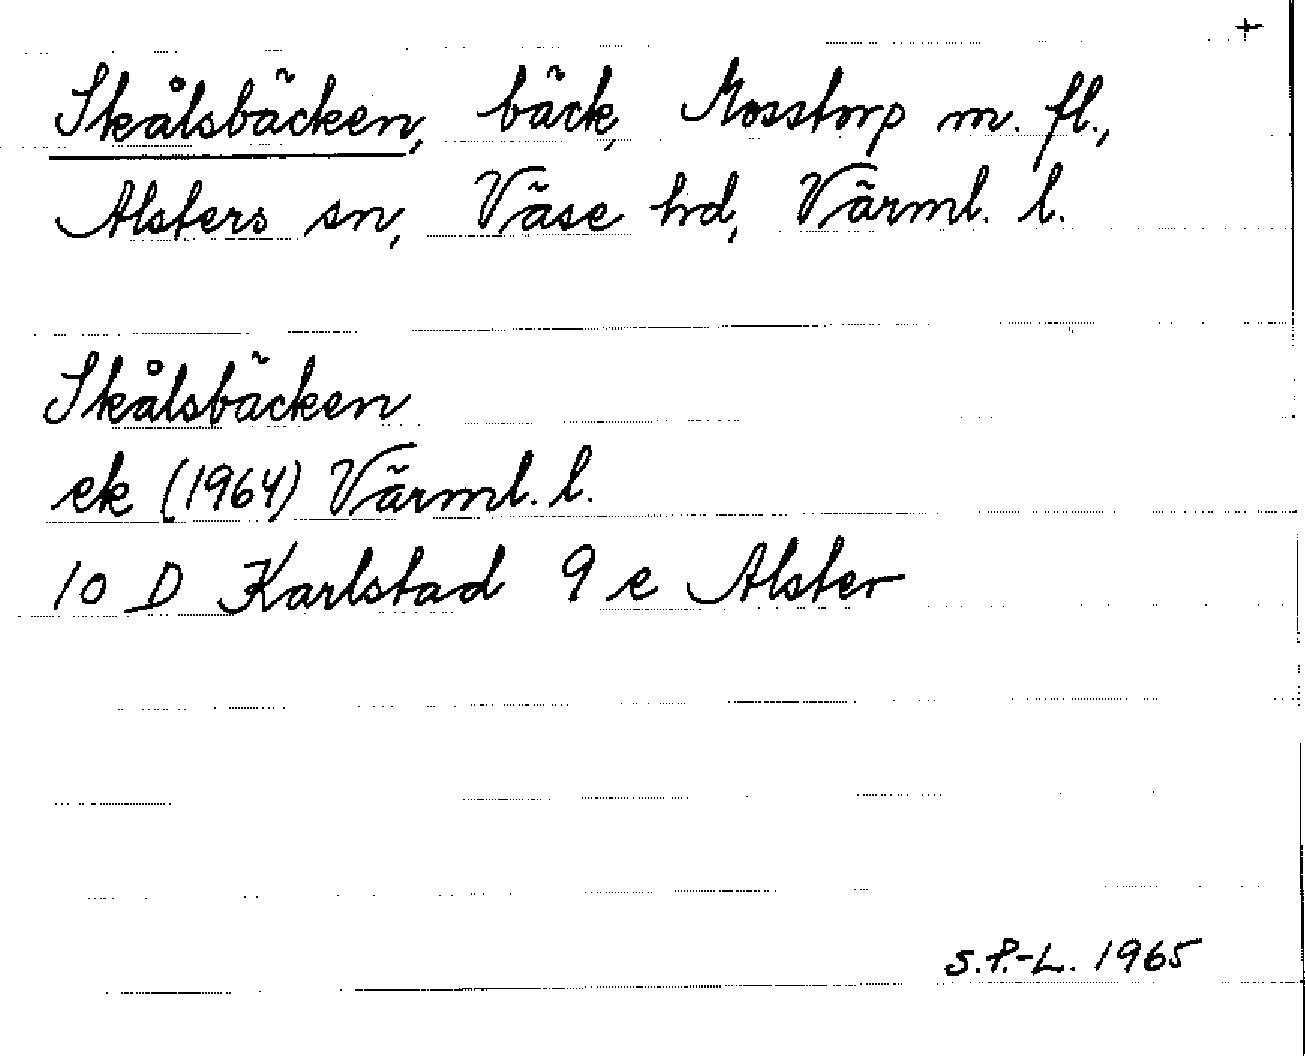 +
Skålsbäcken, bäck, Mosstorp m. fl.,
Alsters sn, Väse hd, Värml. l.
Skålsbäcken
ek (1964) Värml. l.
10 D Karlstad 9 e Alster
S.P.-L. 1965